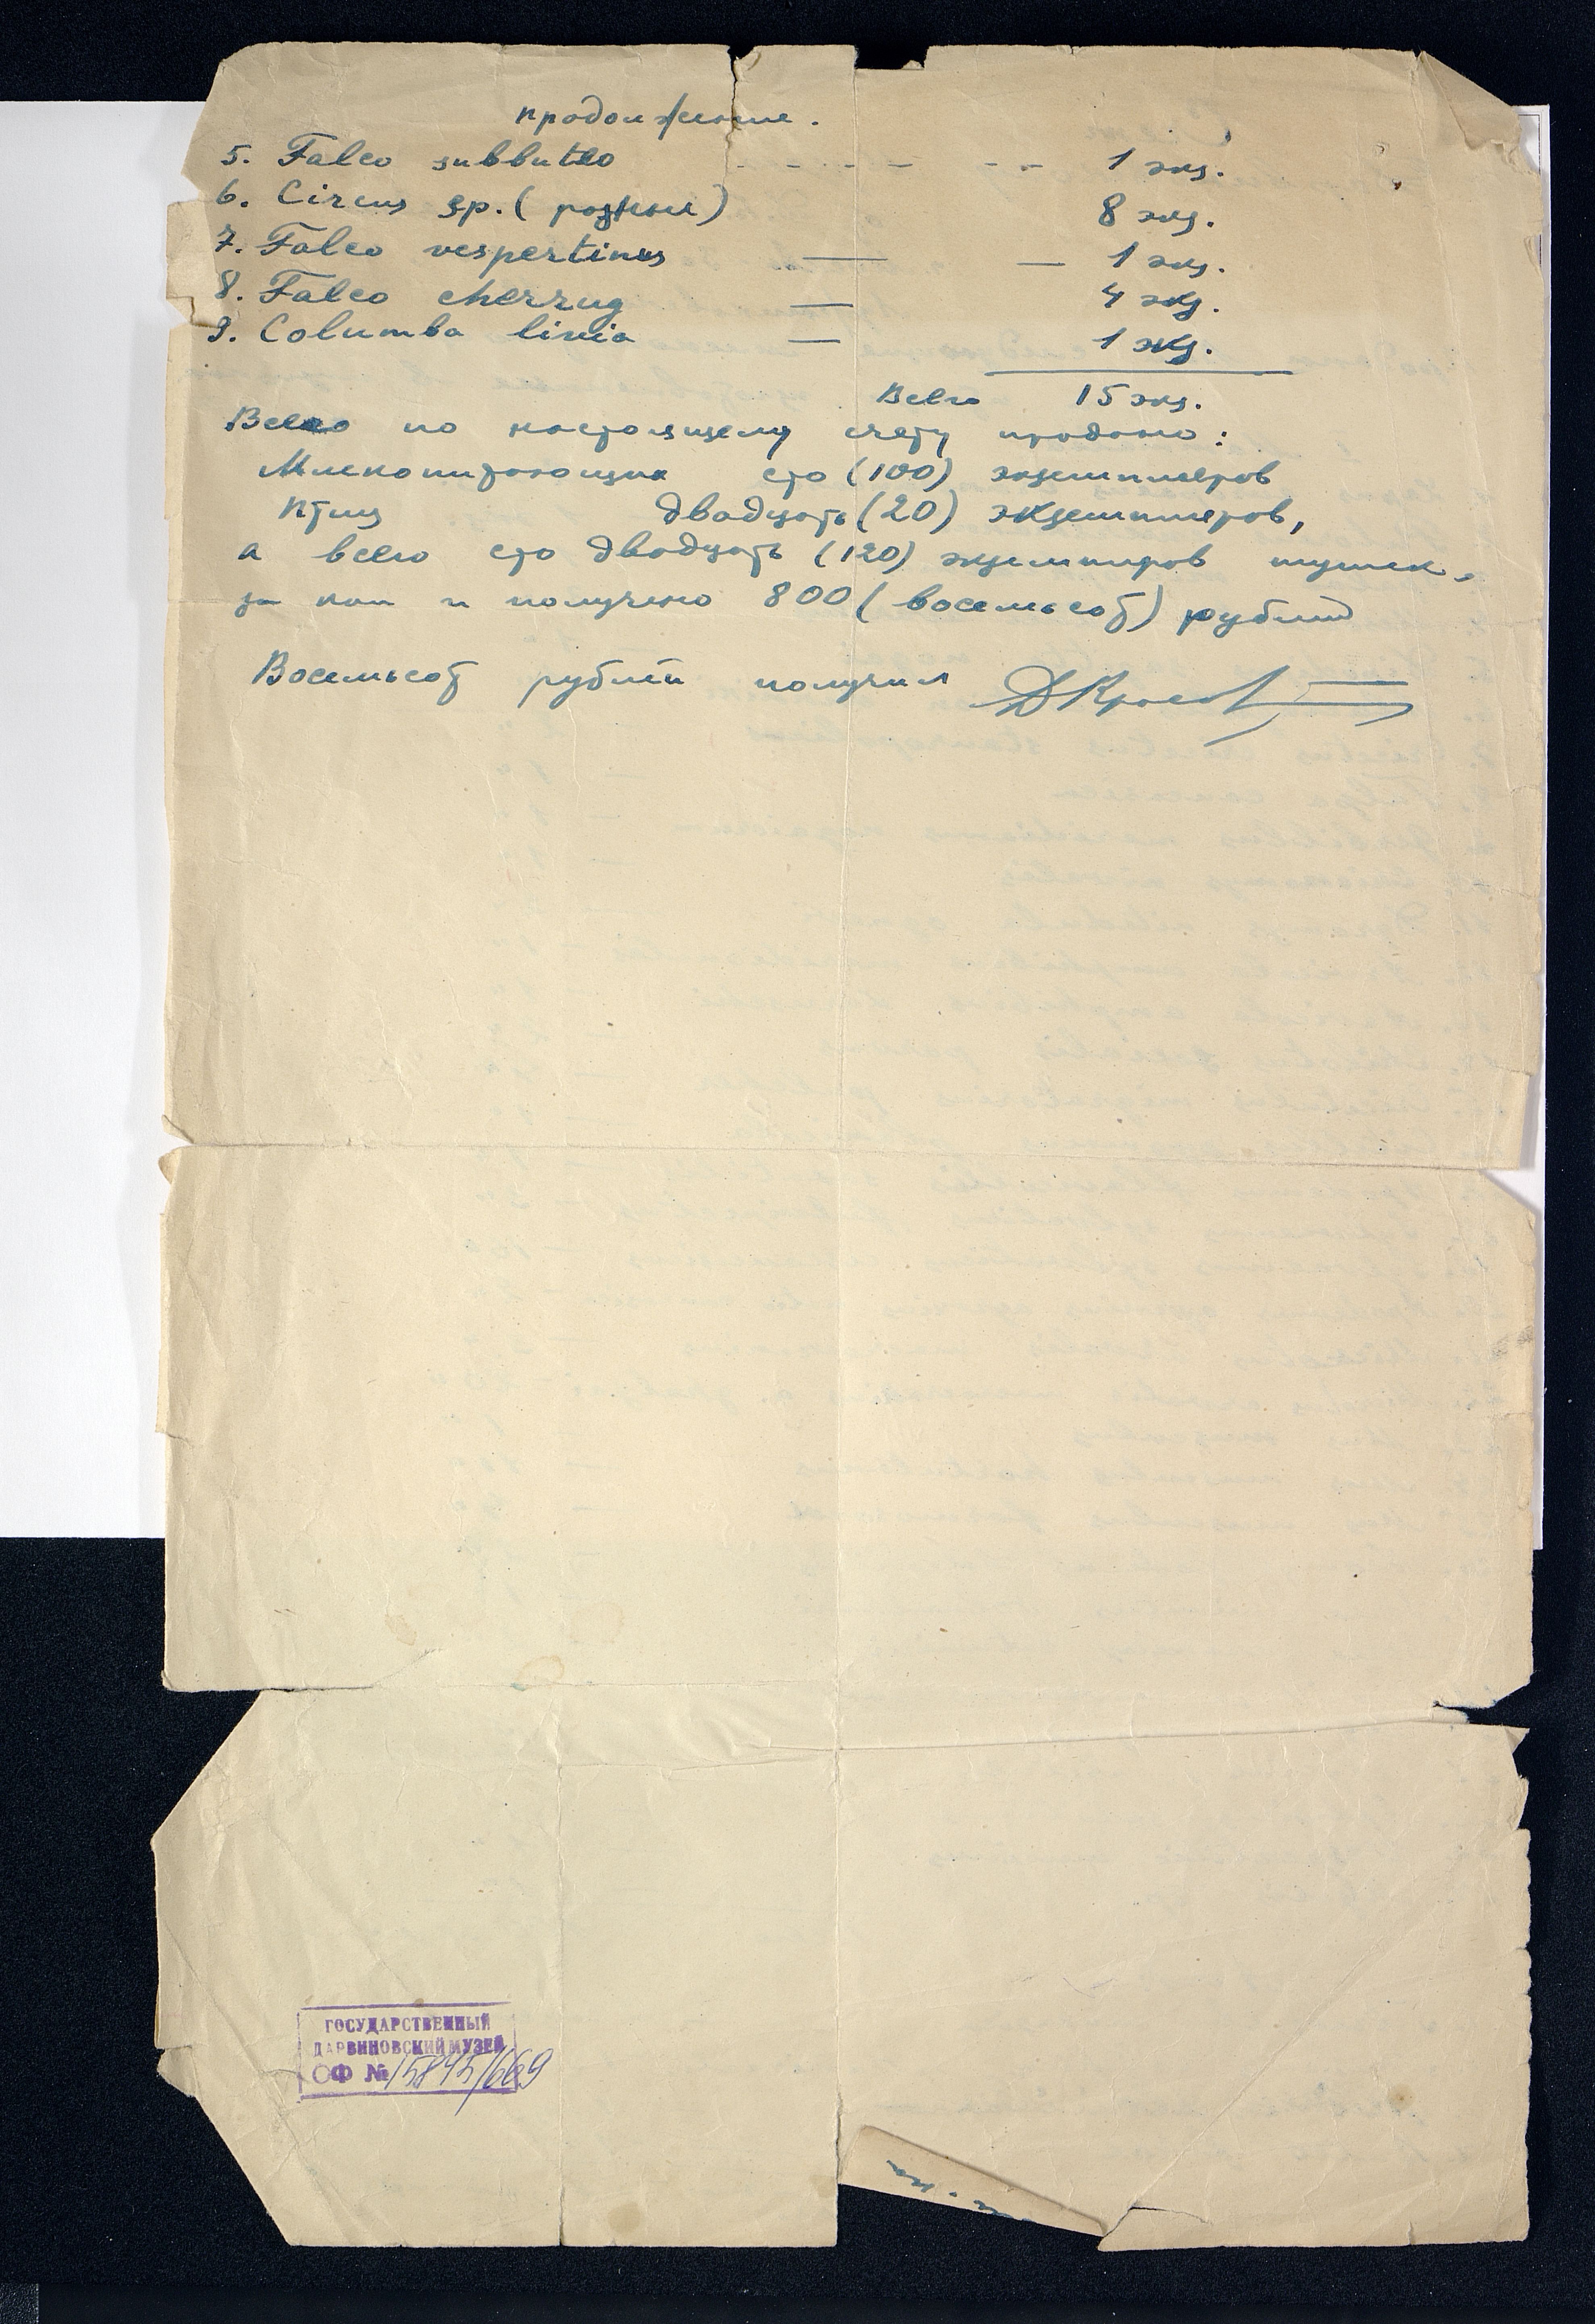 продолжение.
5. Falco subbuteo - - - - - - 1 экз.
6. Circus sp. (разные) 8 экз.
7. Falco vespertinus — — 1 экз.
8. Falco cherrug — 4 экз.
9. Columba livia — 1 экз.
Всего 15 экз.
Всего по настоящему счету продано:
Млекопитающих сто (100) экземпляров
Птиц двадцать (20) экземпляров,
а всего сто двадцать (120) экземпляров тушек,
за кои и получено 800 (восемьсот) рублей
Восемьсот рублей получил
ГОСУДАРСТВЕННЫЙ
ДАРВИНОВСКИЙ МУЗЕЙ
ОФ № 15845/669